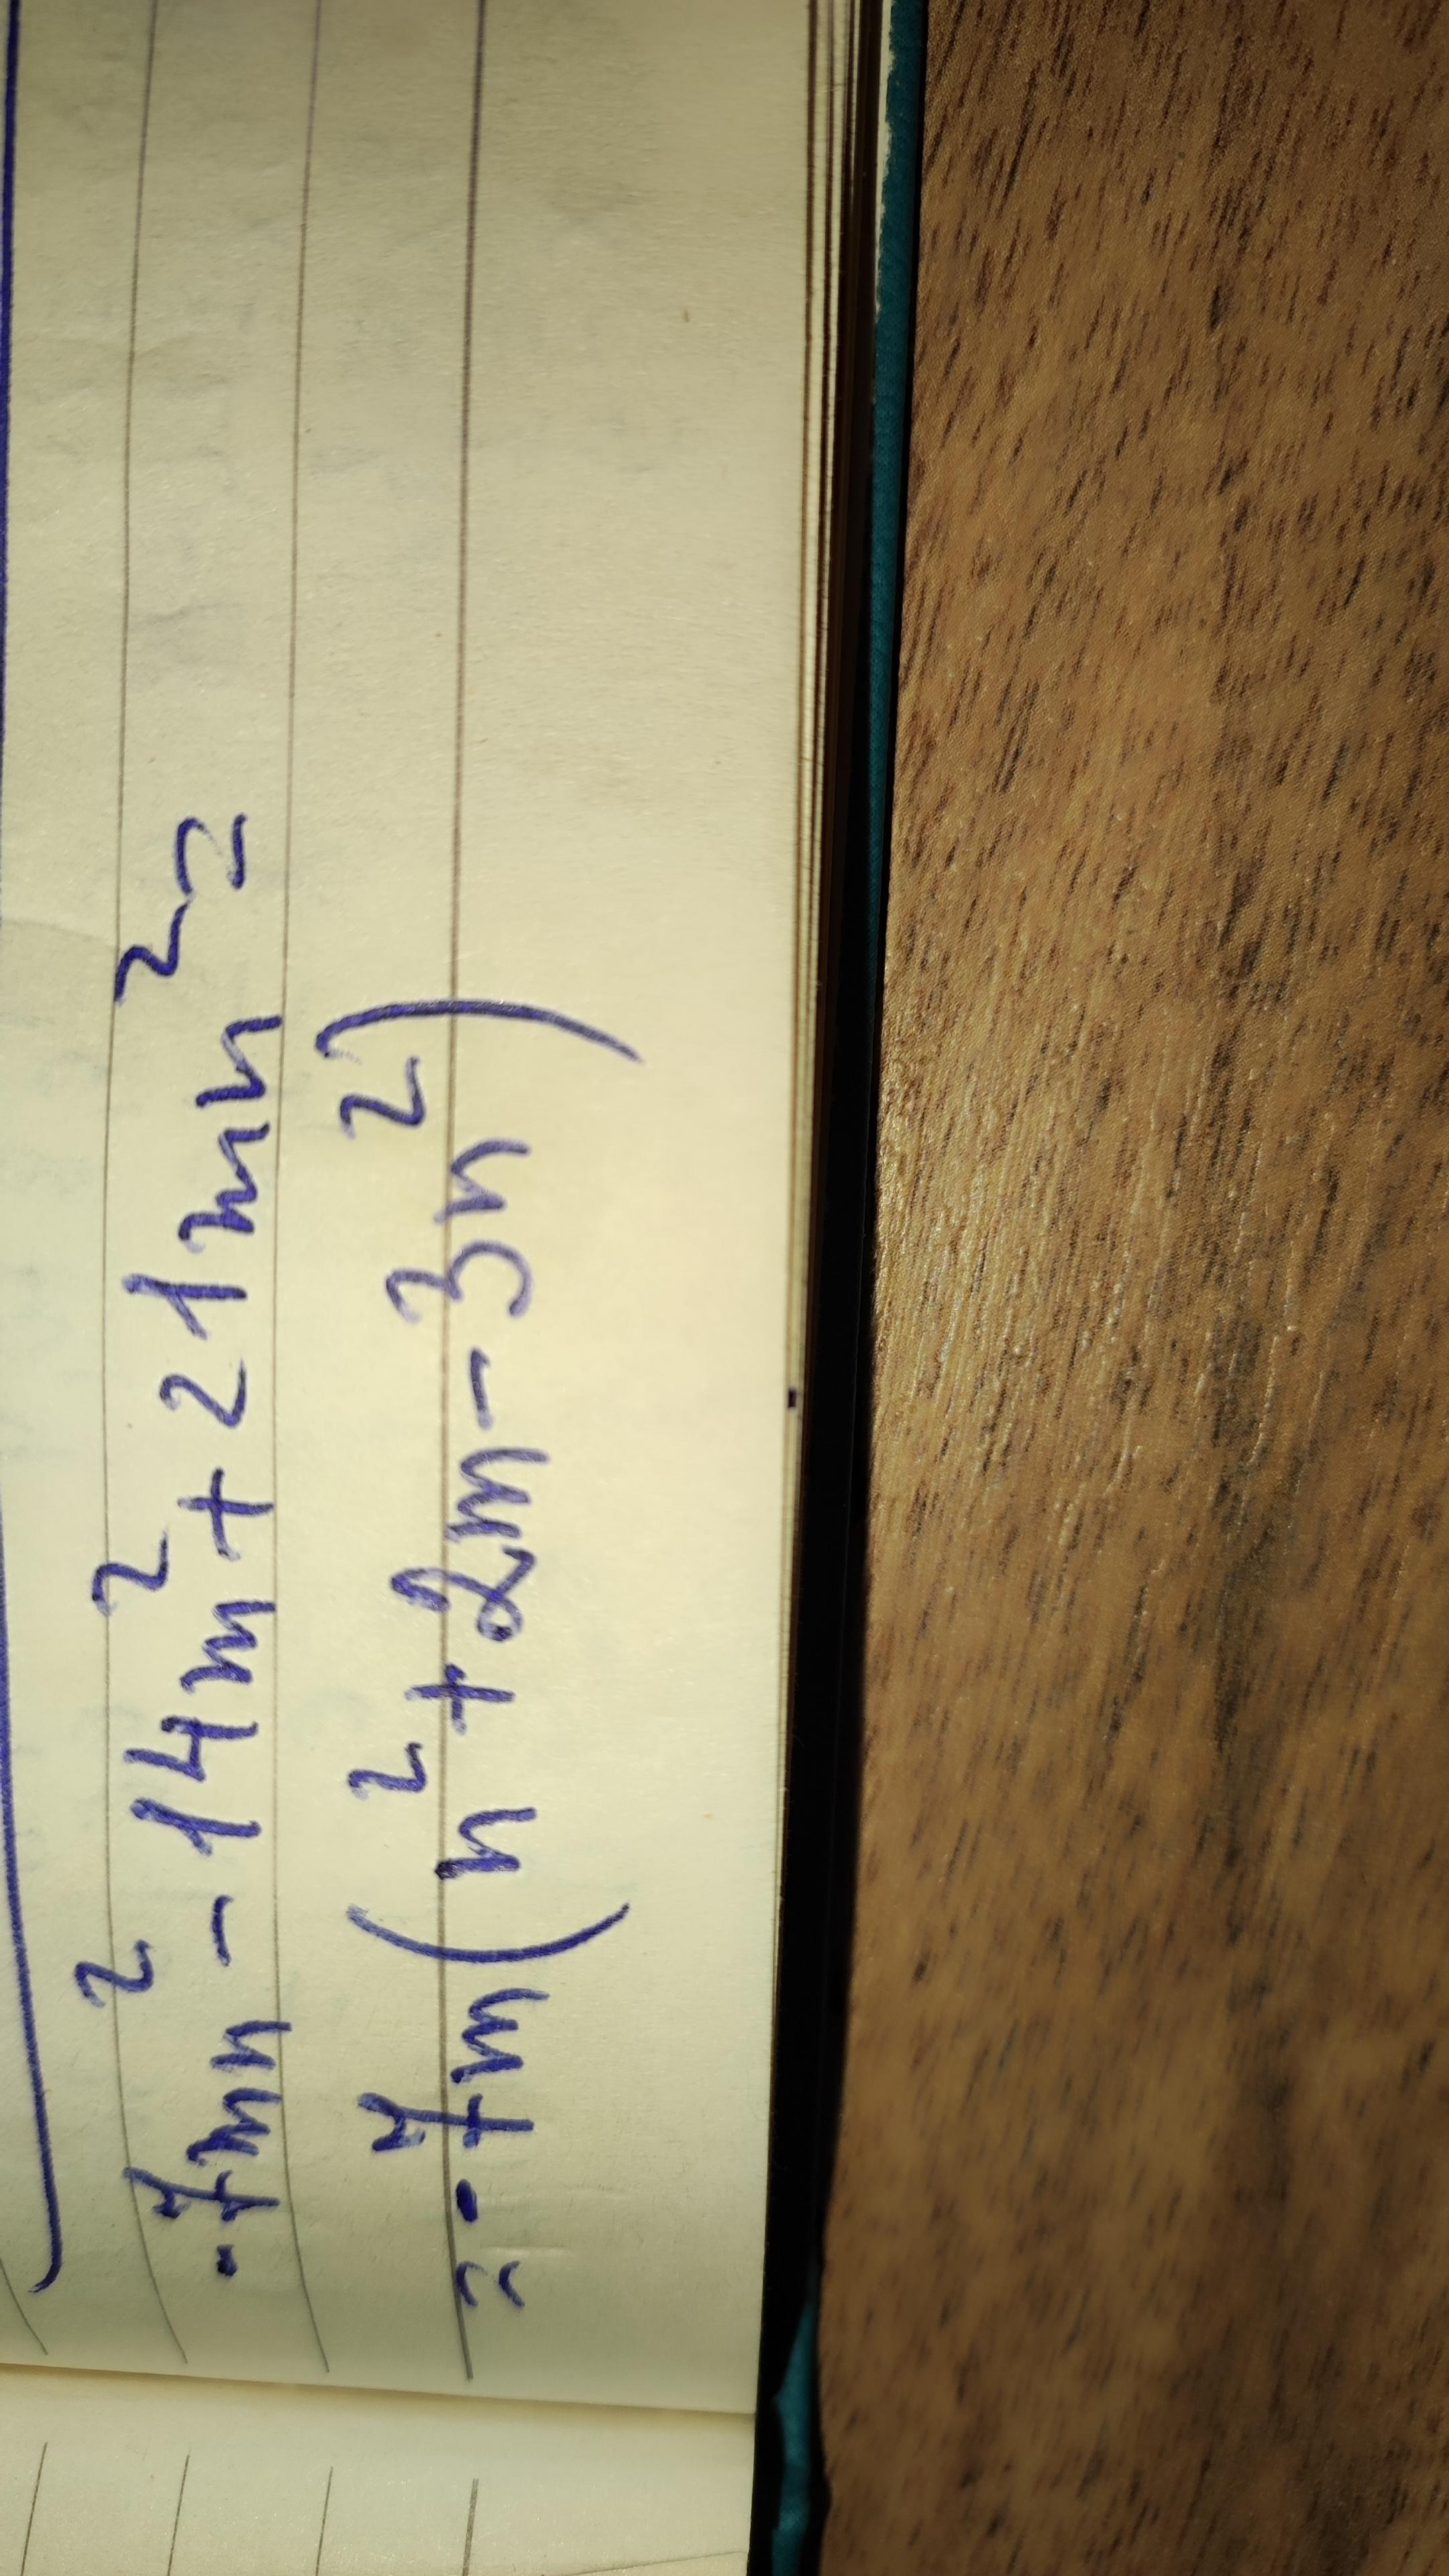 -7mn² - 14m² + 21mn² =
= -7m(n² + 2m - 3n²)